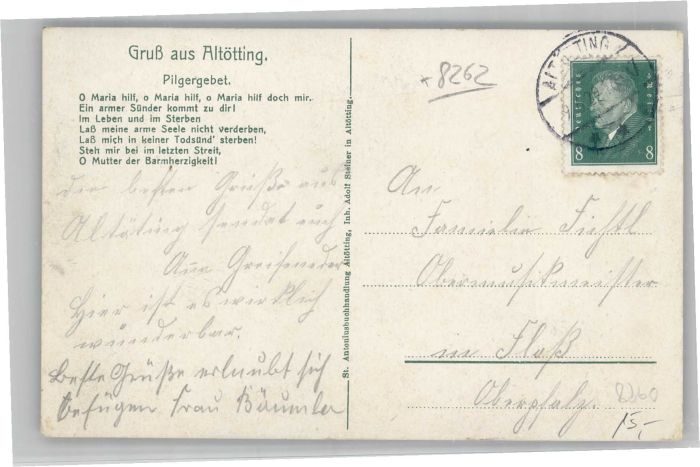 Gruß aus Altötting.
Pilgergebet.
O Maria hilf, o Maria hilf, o Maria hilf doch mir.
Ein armer Sünder kommt zu dir!
Im Leben und im Sterben
Laß meine arme Seele nicht verderben,
Laß mich in keiner Todsünd' sterben!
Steh mir bei im letzten Streit,
O Mutter der Barmherzigkeit!
die besten Grüße aus
Altötting sendet euch
Hier ist es wirklich
wunderbar.
Beste Grüße erlaubt sich
beifügen Frau Bäumler
St. Antoniusbuchhandlung Altötting, Inh. Adolf Steiner in Altötting.
8262
ALTÖTTING
Deutsches Reich
8 8
An
Familie Fichtl
Obermusikmeister
in Floß
Oberpfalz.
8260
15,-